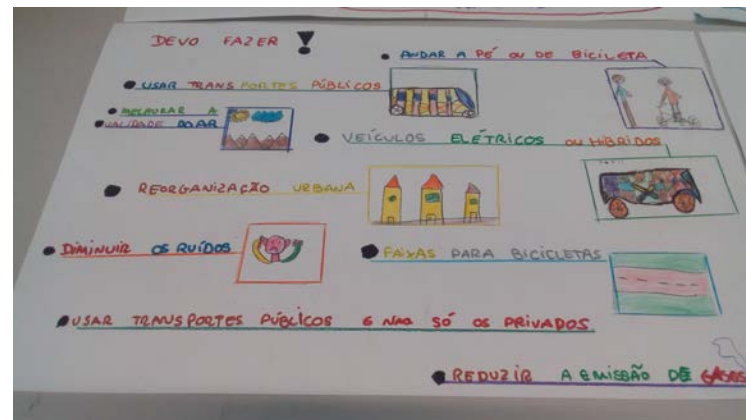 DEVO FAZER !
• ANDAR A PÉ OU DE BICICLETA
• USAR TRANSPORTES PÚBLICOS
• MELHURAR A
• QUALIDADE DO AR
• VEÍCULOS ELÉTRICOS OU HÍBRIDOS
• REORGANIZAÇÃO URBANA
• DIMINUIR OS RUÍDOS
• FAIXAS PARA BICICLETAS
• USAR TRANSPORTES PÚBLICOS E NAO SÓ OS PRIVADOS
• REDUZIR A EMISSÃO DE GASES